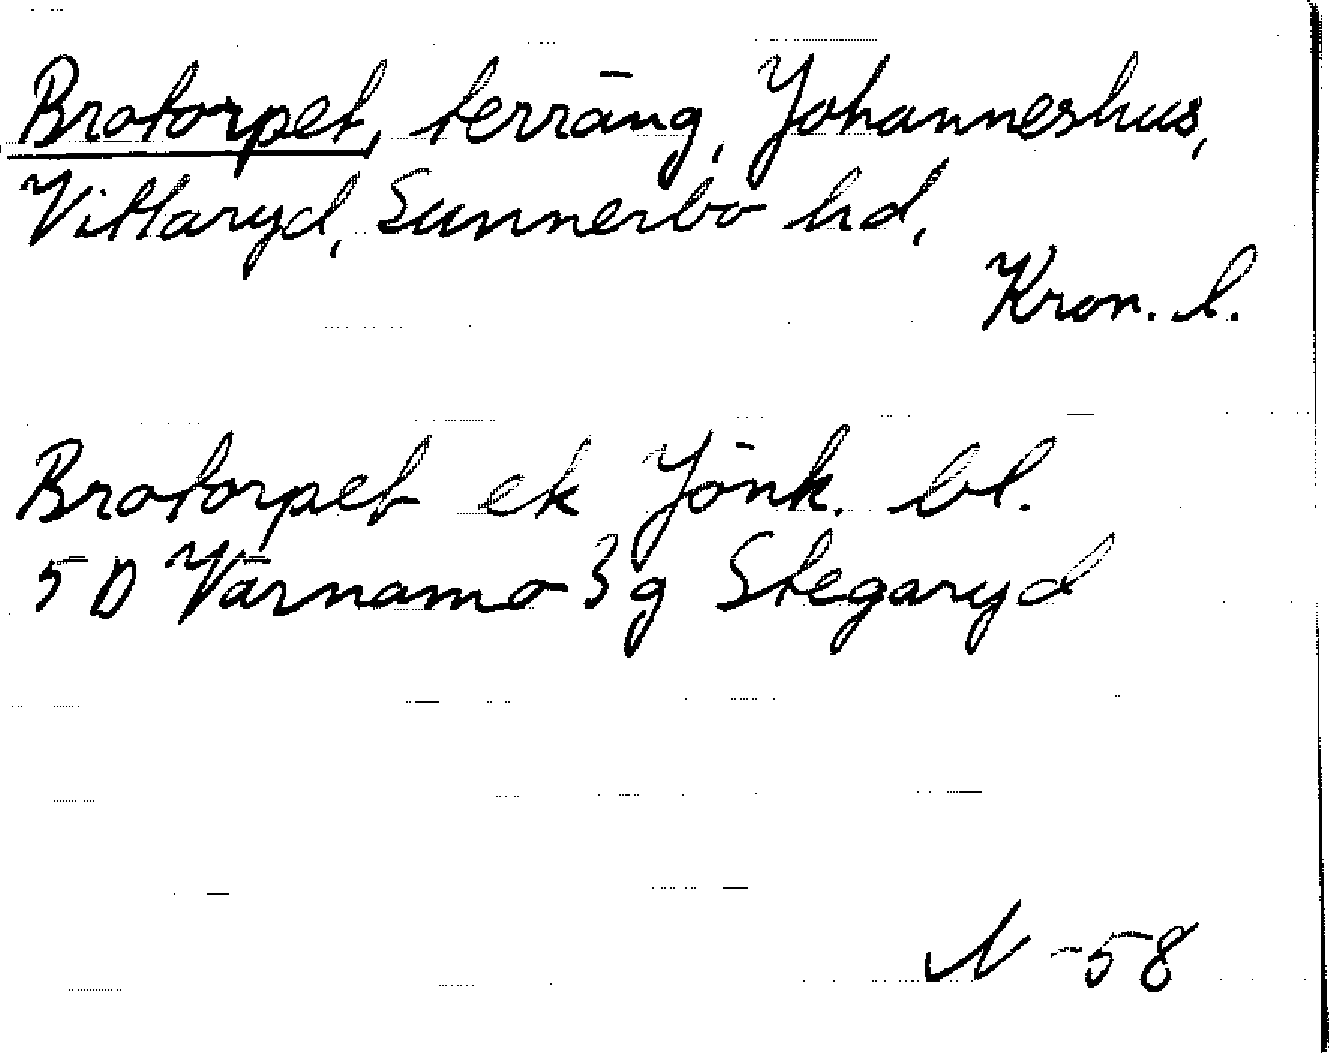 Brotorpet, terräng, Johanneshus,
Vittaryd, Sunnerbo hd,
Kron. l.
Brotorpet ek Jönk. bl.
5 D Värnamo 3g Stegaryd
N -58